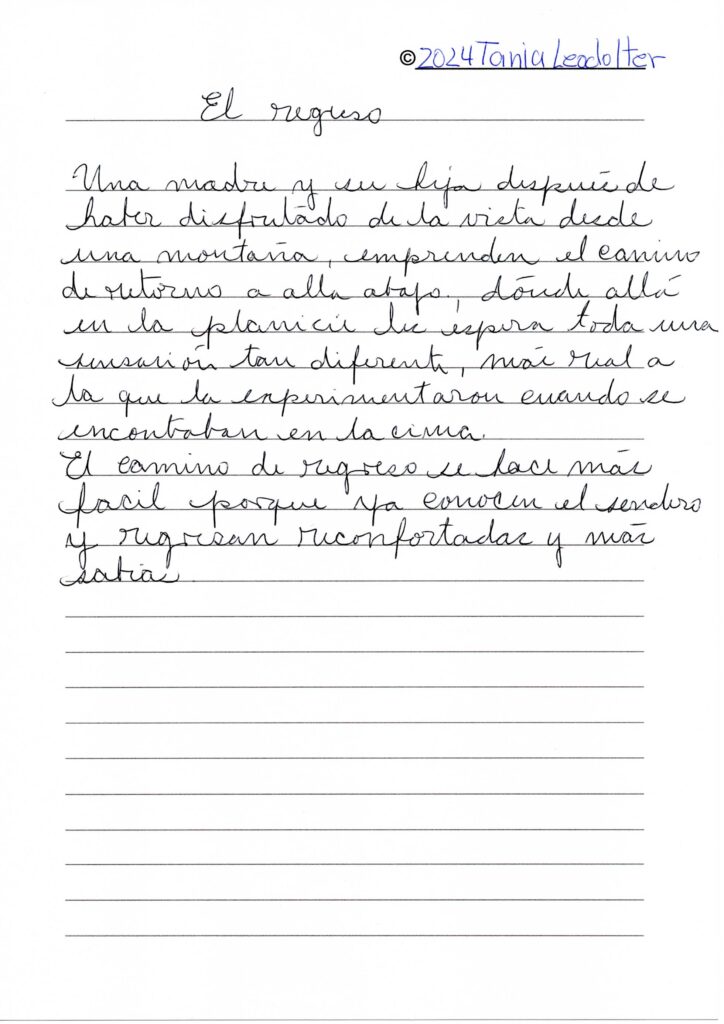 ©2024 Tania Leadolter
El regreso
Una madre y su hija después de
haber disfrutádo de la vista desde
una montaña, emprenden el camino
de retorno a alla abajo, dónde allá
en la planicie les espera toda una
sensación tan diferente, más real a
la que la experimentaron cuando se
encontraban en la cima.
El camino de regreso se hace más
facil porque ya conocen el sendero
y regresan reconfortadas y más
sabias.